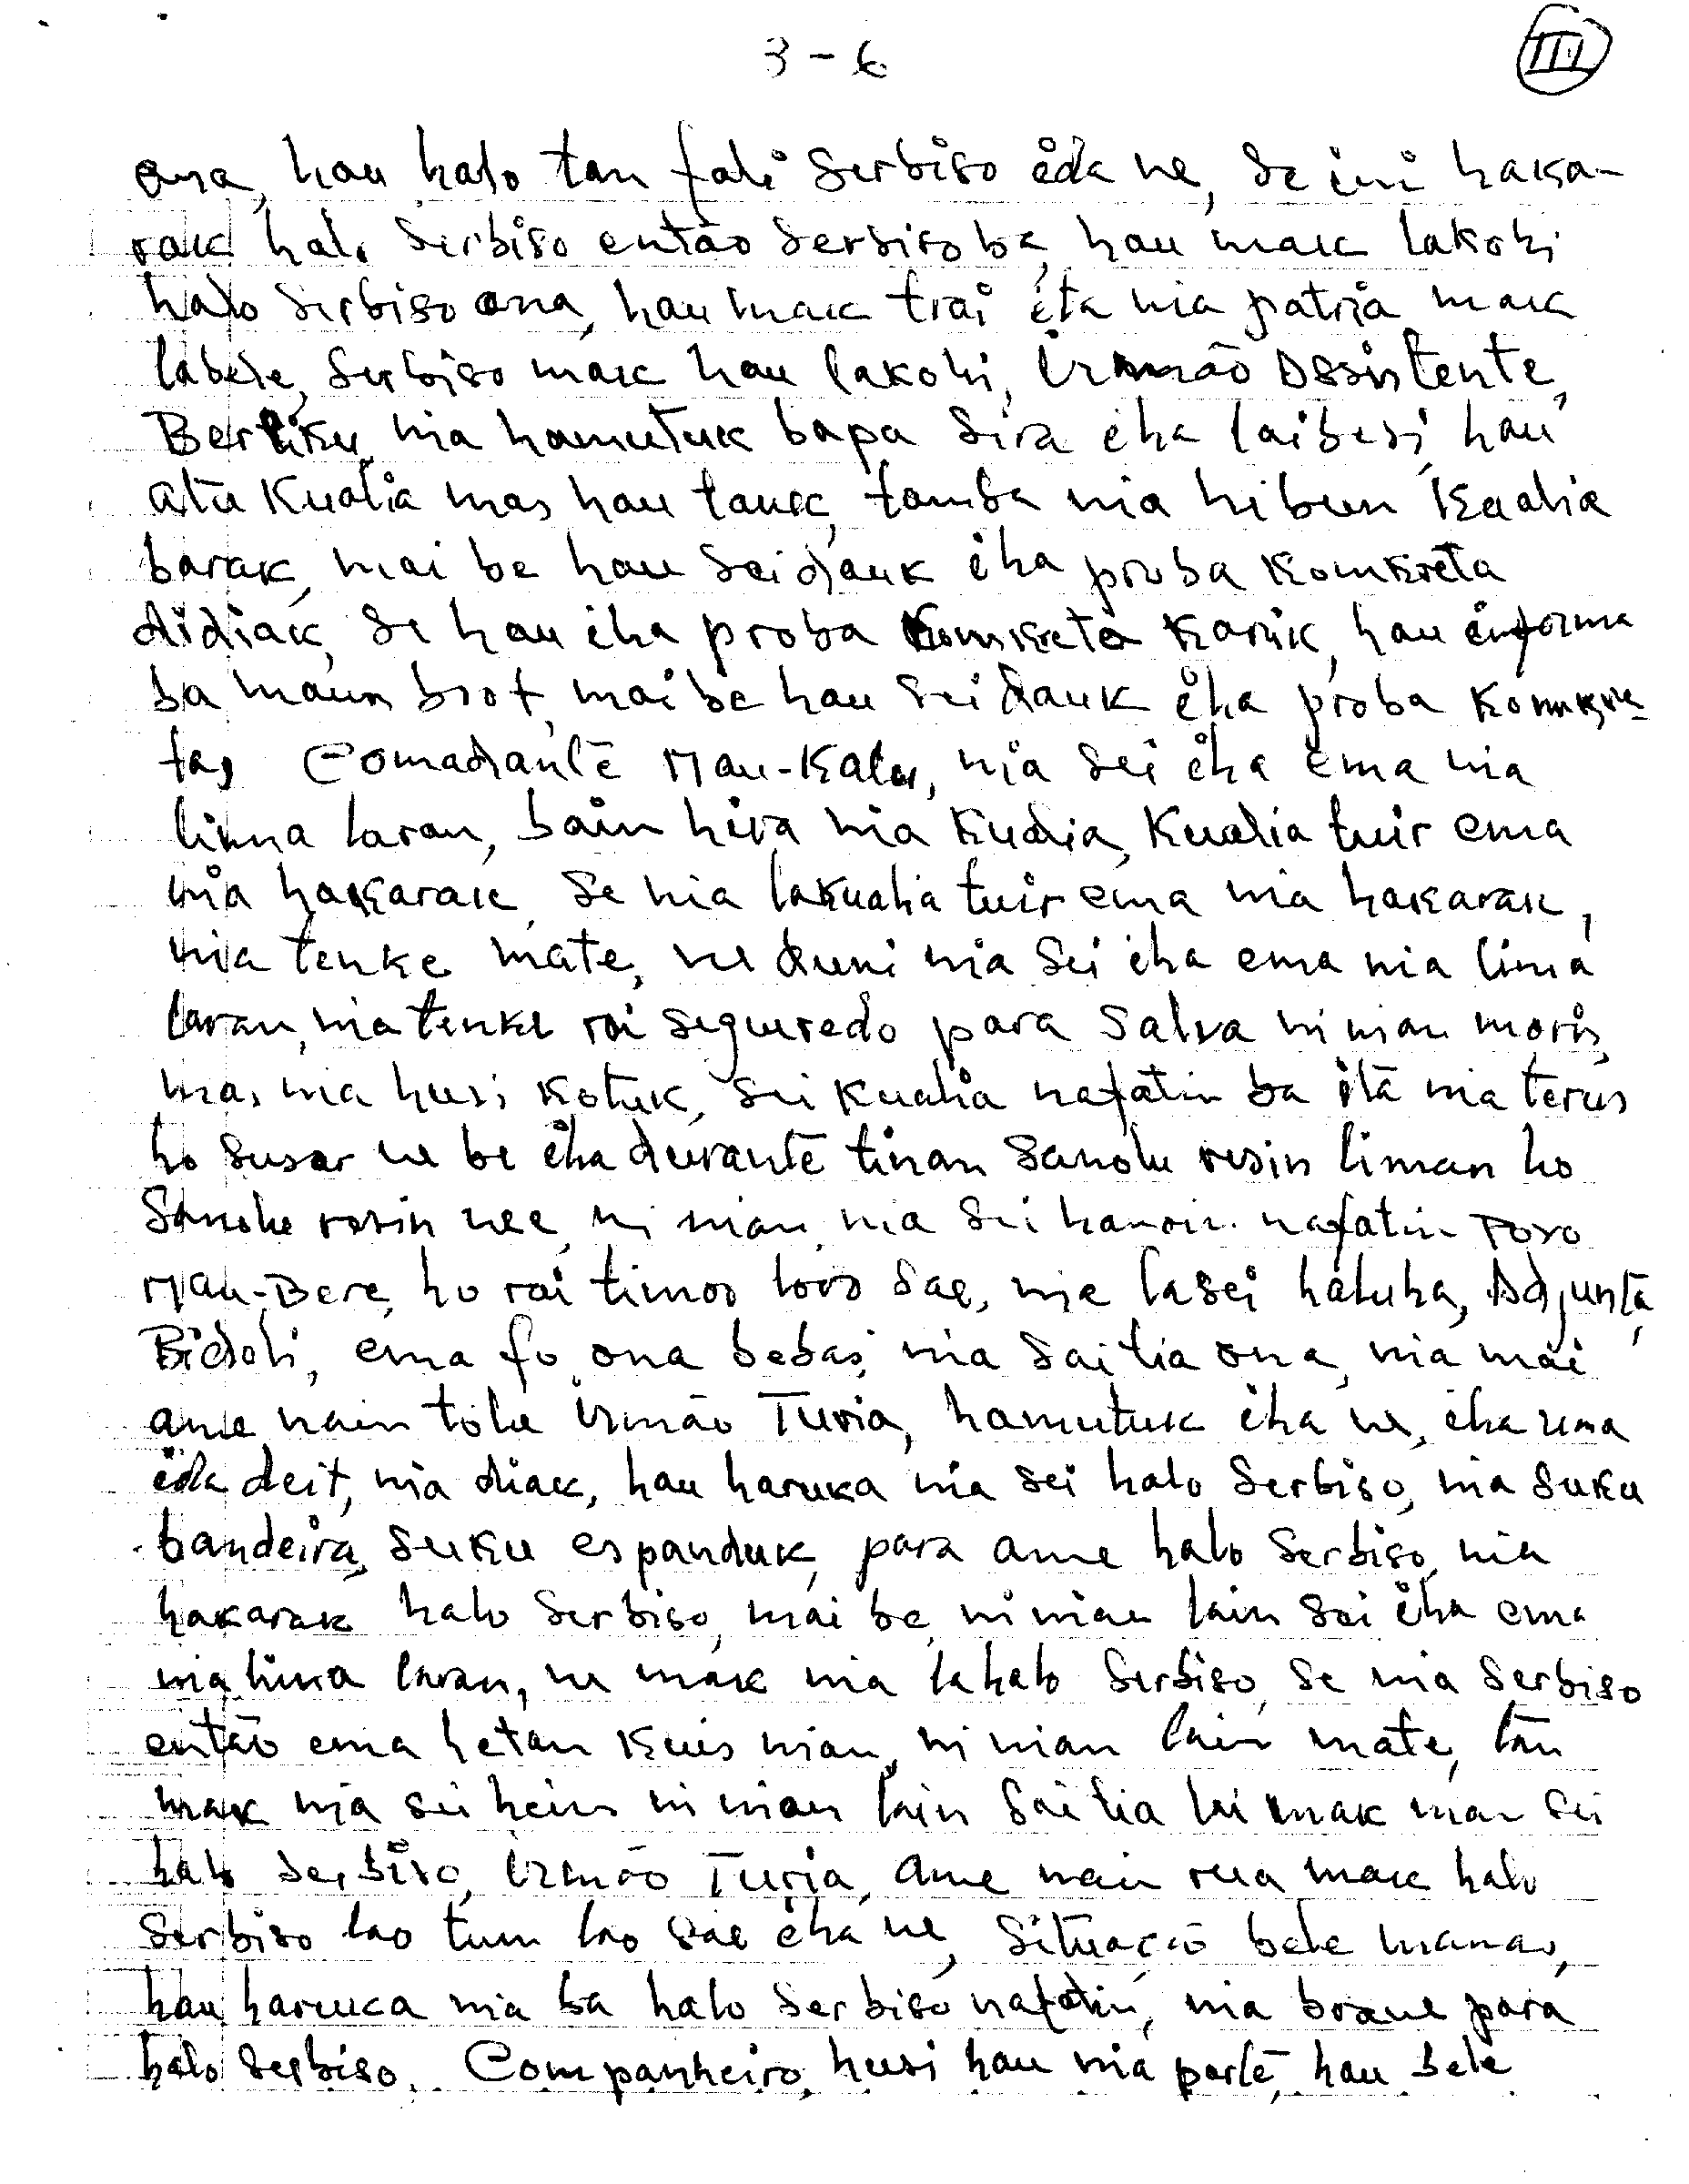 3-6
III
ona, hau halo tan fali serbiso ida ne, se imi haka-
rak halo serbiso então serbiso ba, hau mak lakohi
halo serbiso ona, hau mak trai ita nia patria mak
labele, serbiso mak hau lakohi, Irmão Assistente,
Berliku, nia hamutuk bapa sira iha laibesi, hau
atu kualia mas hau tauk, tamba nia hibun kualia
barak, mai be hau seidauk iha proba komkreta
didiak, se hau iha proba komkreta karik, hau informa
ba maun boot, mai be hau seidauk iha proba komkre-
tas Comadante Mau-Kalu, nia sei iha ema nia
lima laran, bain hira nia kualia, kualia tuir ema
nia hakarak, se nia lakualia tuir ema nia hakarak,
nia tenke mate, ne duni nia sei iha ema nia lima
laran, nia tenke rai segueredo para salva ninian moris,
mas nia husi kotuk, sei kualia nafatin ba ita nia terus
ho susar ne be iha durante tinan sanolu resin liman ho
sanolu resin nee, ninian, nia sei hanoin nafatin Povo
Mau-Bere, ho rai timor loro sae, nia lasei haluha, Adjunta,
Bidoli, ema fo ona bebas, nia sai tia ona, nia mai
ame nain tolu Irmão Turia, hamutuk iha ne, iha uma
ida deit, nia diak, hau haruka nia sei halo serbiso, nia suku
bandeira, suku espanduk, para ame halo serbiso, nia
hakarak halo serbiso, mai be, ninian lain sei iha ema
nia lima laran, ne mak nia lahalo serbiso, se nia serbiso
então ema hetan kuis nian, ninian lain mate, tan
mak nia sei hein ninian lain sai tia lai mak nia sei
halo serbiso, Irmão Turia, ame nain rua mak halo
serbiso lao tun lao sae iha ne, situação bele manas,
hau haruca nia ba halo serbiso nafatin, nia brane para
halo serbiso. Companheiro, husi hau nia parte, hau bele